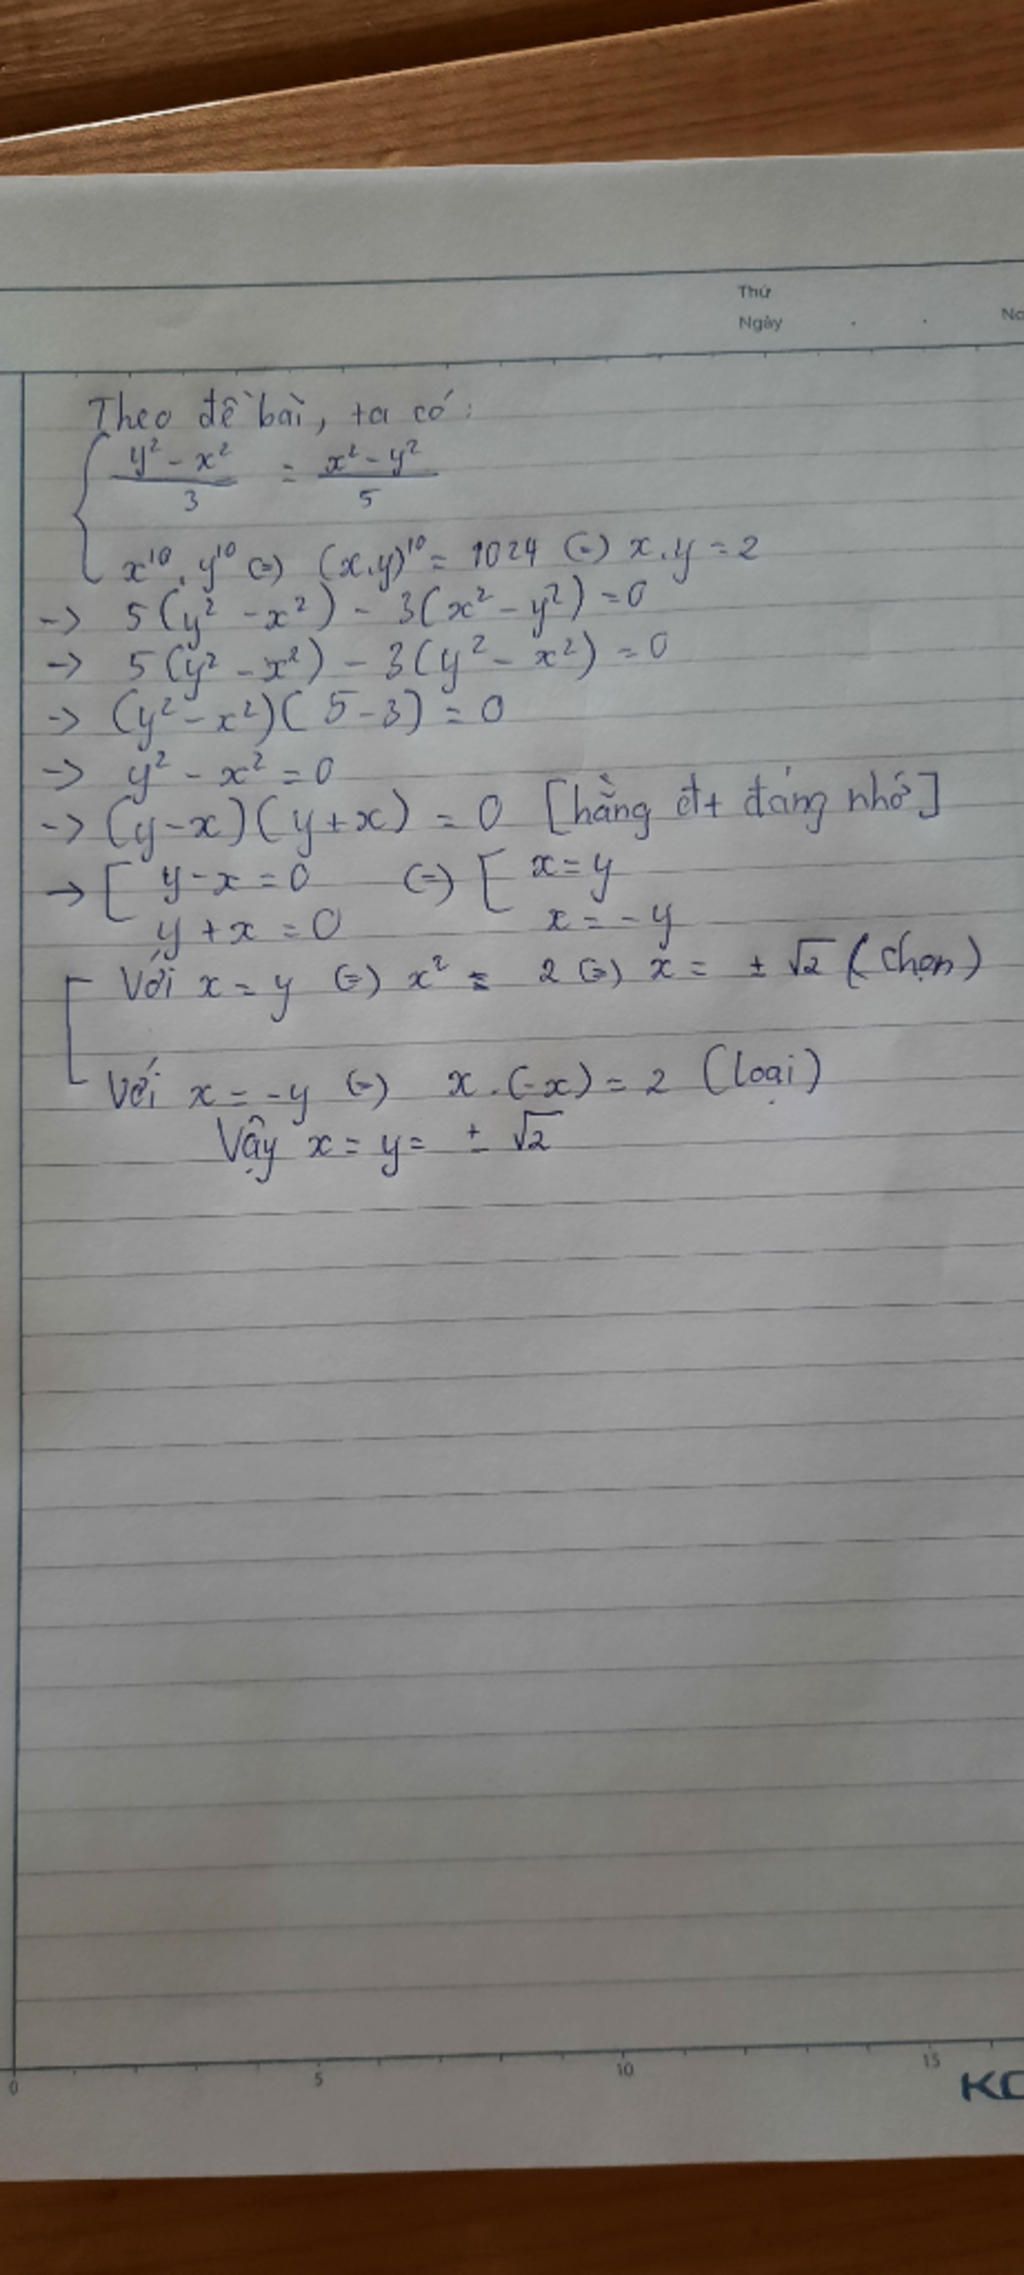 Thứ
Ngày . . No
Theo đề bài, ta có:
{ (y² - x²)/3 = (x² - y²)/5
x¹⁰.y¹⁰ (=) (x.y)¹⁰ = 1024 (=) x.y = 2
-> 5(y² - x²) - 3(x² - y²) = 0
-> 5(y² - x²) - 3(y² - x²) = 0
-> (y² - x²)(5 - 3) = 0
-> y² - x² = 0
-> (y - x)(y + x) = 0 [hằng đt đáng nhớ]
-> [ y - x = 0 (=) [ x = y
y + x = 0 x = - y
[ Với x = y (=) x² = 2 (=) x = ± √2 (chọn)
Với x = - y (=) x.(-x) = 2 (loại)
Vậy x = y = ± √2
0 5 10 15